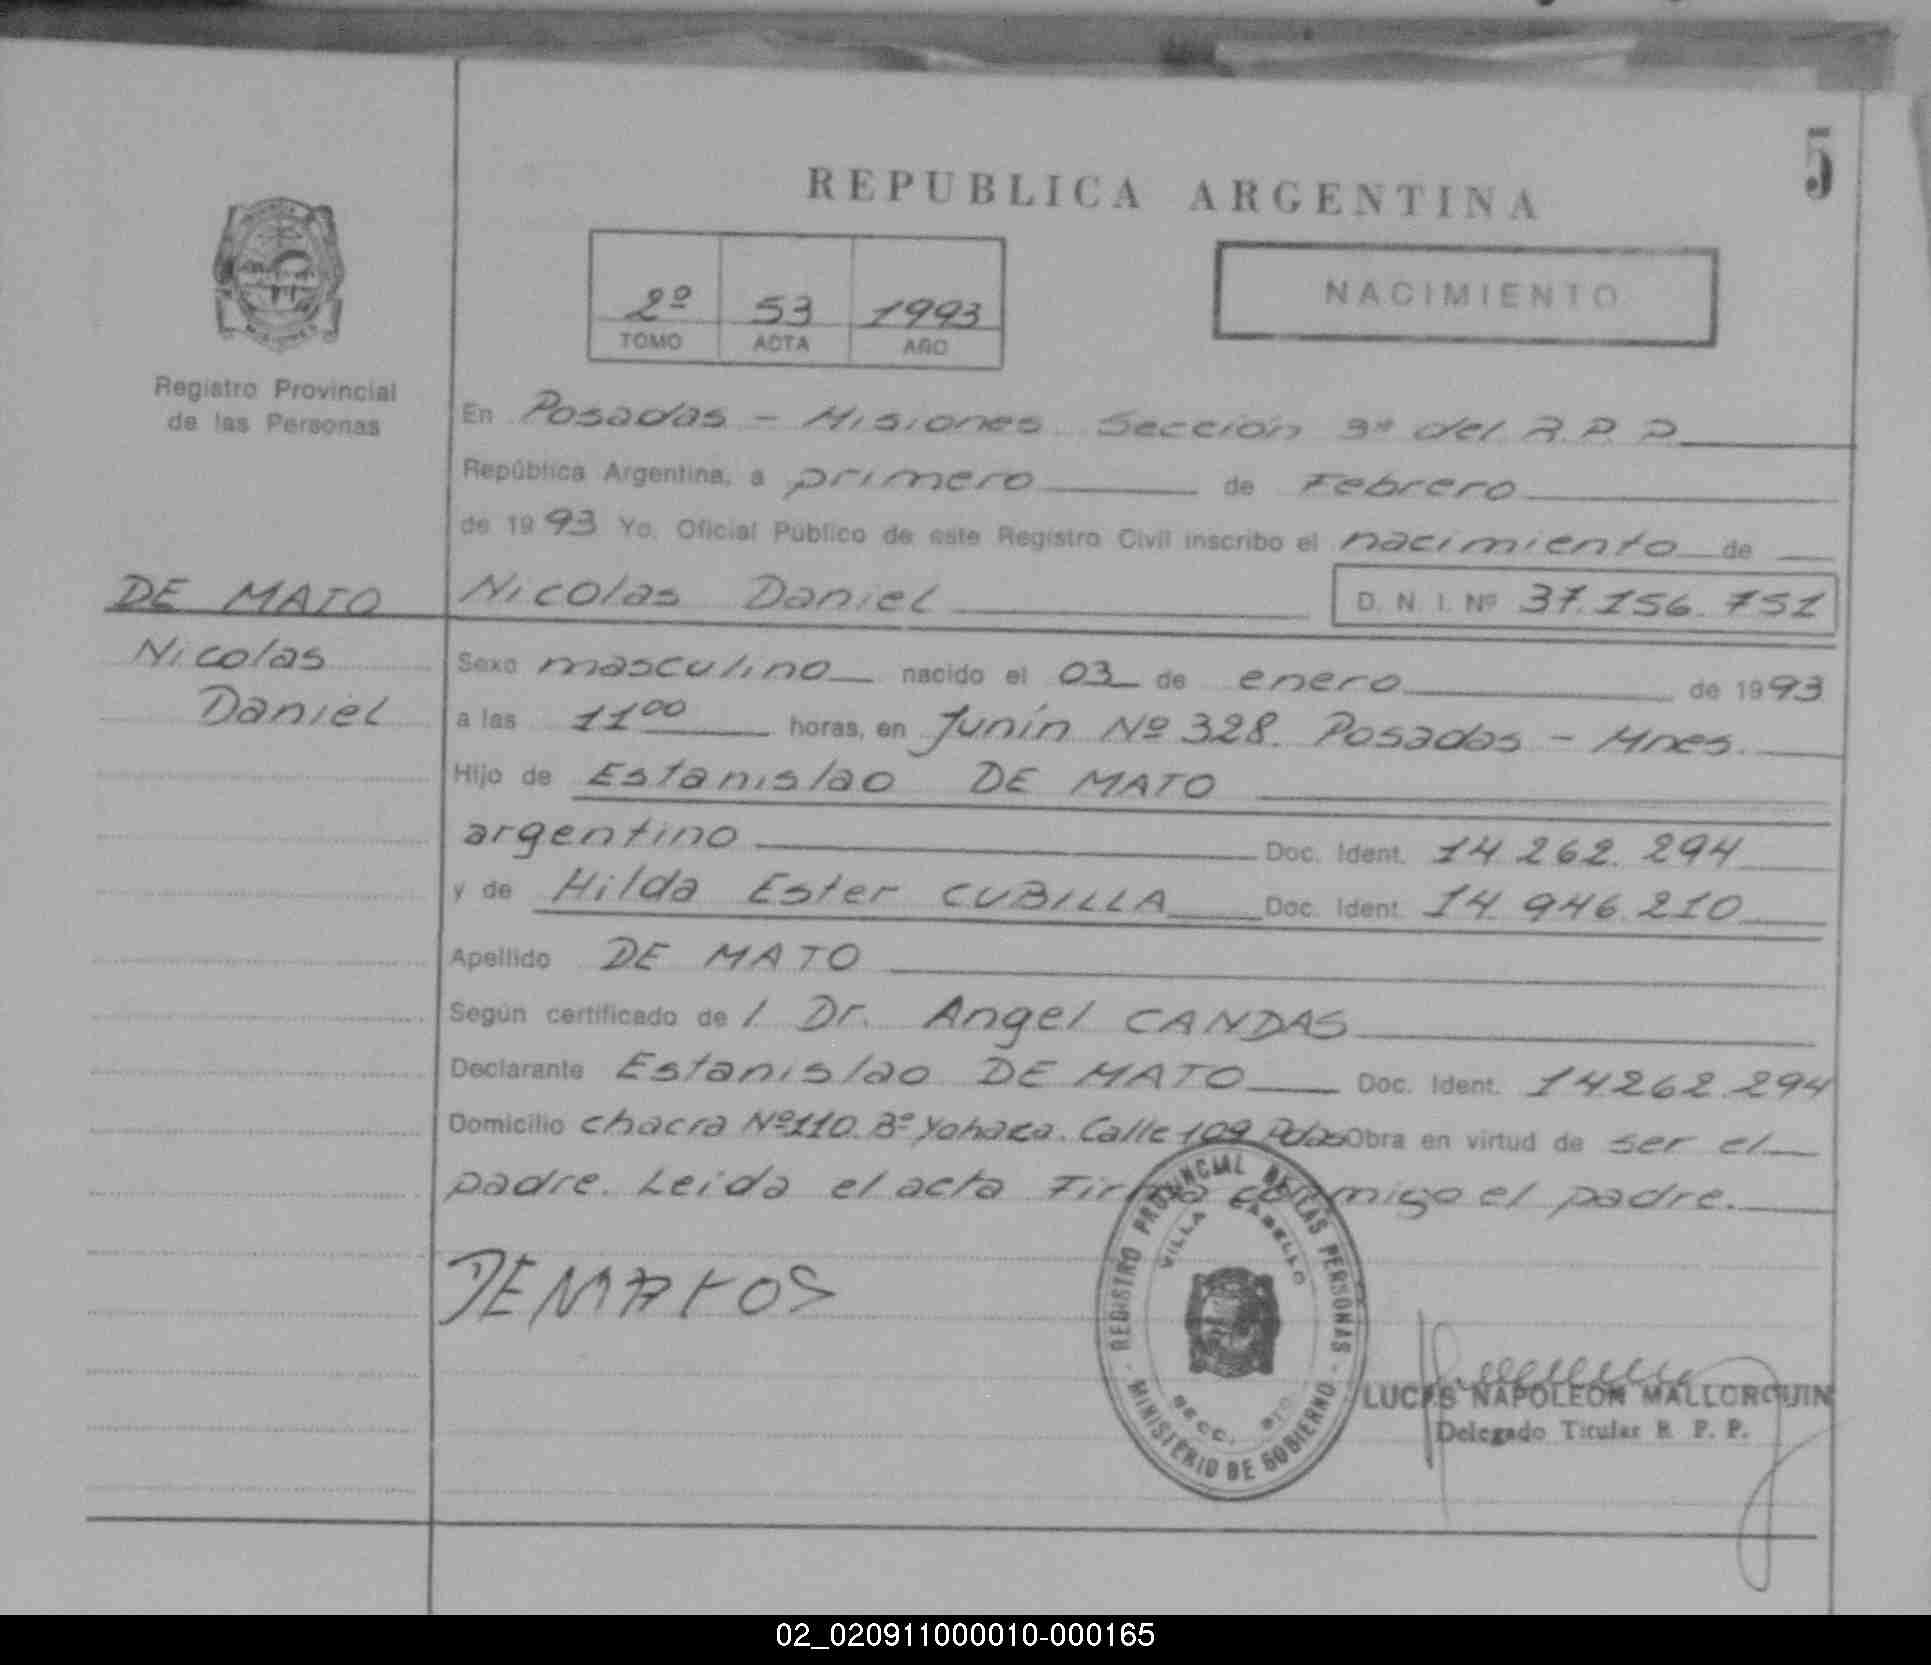 5
REPUBLICA ARGENTINA
2º 53 1993
TOMO ACTA AÑO
NACIMIENTO
Registro Provincial
de las Personas
En Posadas - Misiones Sección 3ª del R.P.P.
República Argentina, a primero de Febrero
de 1993 Yo, Oficial Público de este Registro Civil inscribo el nacimiento de
DE MATO Nicolas Daniel D. N. I. Nº 37.156.751
Nicolas
Daniel
Sexo masculino nacido el 03 de enero de 1993
a las 11⁰⁰ horas, en Junín Nº 328. Posadas - Mnes.
Hijo de Estanislao DE MATO
argentino Doc. Ident. 14.262.294
y de Hilda Ester CUBILLA Doc. Ident. 14.946.210
Apellido DE MATO
Según certificado de l Dr. Angel CANDAS
Declarante Estanislao DE MATO Doc. Ident. 14.262.294
Domicilio chacra Nº110. Bº Calle 109 Pdas Obra en virtud de ser el
padre. Leida el acta Firma conmigo el padre.
DEMATOS
REGISTRO PROVINCIAL DE LAS PERSONAS
VILLA CABELLO
SECC. 3ra
MINISTERIO DE GOBIERNO
LUCAS NAPOLEON MALLORQUIN
Delegado Titular R. P. P.
02_020911000010-000165